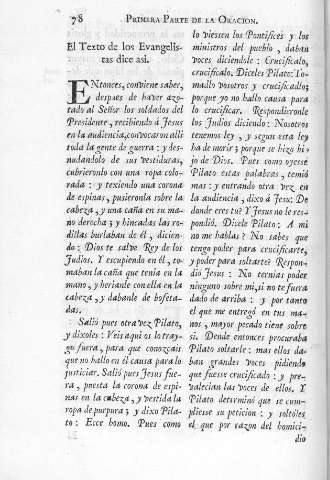 78 PRIMERA PARTE DE LA ORACION.
El Texto de los Evangelis-
tas dice asi.
ENtonces, conviene saber,
despues de haver azo-
tado al Señor los soldados del
Presidente, recibiendo á Jesus
en la audiencia, convocaron alli
toda la gente de guerra: y des-
nudandolo de sus vestiduras,
cubrieronlo con una ropa colo-
rada: y texiendo una corona
de espinas, pusieronla sobre la
cabeza, y una caña en su ma-
no derecha; y hincadas las ro-
dillas burlaban de él, dicien-
do: Dios te salve Rey de los
Judios. Y escupiendo en él, to-
maban la caña que tenia en la
mano, y herianle con ella en la
cabeza, y dabanle de bofeta-
das.
Salió pues otra vez Pilato,
y dixoles: Veis aqui os lo tray-
go fuera, para que conozcais
que no hallo en él causa para lo
justiciar. Salió pues Jesus fue-
ra, puesta la corona de espi-
nas en la cabeza, y vestida la
ropa de purpura; y dixo Pila-
to: Ecce homo. Pues como
lo viessen los Pontifices y los
ministros del pueblo, daban
voces diciendole: Crucificalo,
crucificalo. Diceles Pilato: To-
madlo vosotros y crucificadlo;
porque yo no hallo causa para
lo crucificar. Respondieronle
los Judios diciendo: Nosotros
tenemos ley, y segun esta ley
ha de morir; porque se hizo hi-
jo de Dios. Pues como oyesse
Pilato estas palabras, temió
mas: y entrando otra vez en
la audiencia, dixo á Jesus: De
donde eres tu? Y Jesus no le res-
pondió. Dicele Pilato: A mi
no me hablas? No sabes que
tengo poder para crucificarte,
y poder para soltarte? Respon-
dió Jesus: No ternias poder
ninguno sobre mi, si no te fuera
dado de arriba: y por tanto
el que me entregó en tus ma-
nos, mayor pecado tiene sobre
si. Dende entonces procuraba
Pilato soltarle: mas ellos da-
ban grandes voces pidiendo
que fuesse crucificado: y pre-
valecian las voces de ellos. Y
Pilato determinó que se cum-
pliesse su peticion: y soltóles
el que por razon del homici-
dio